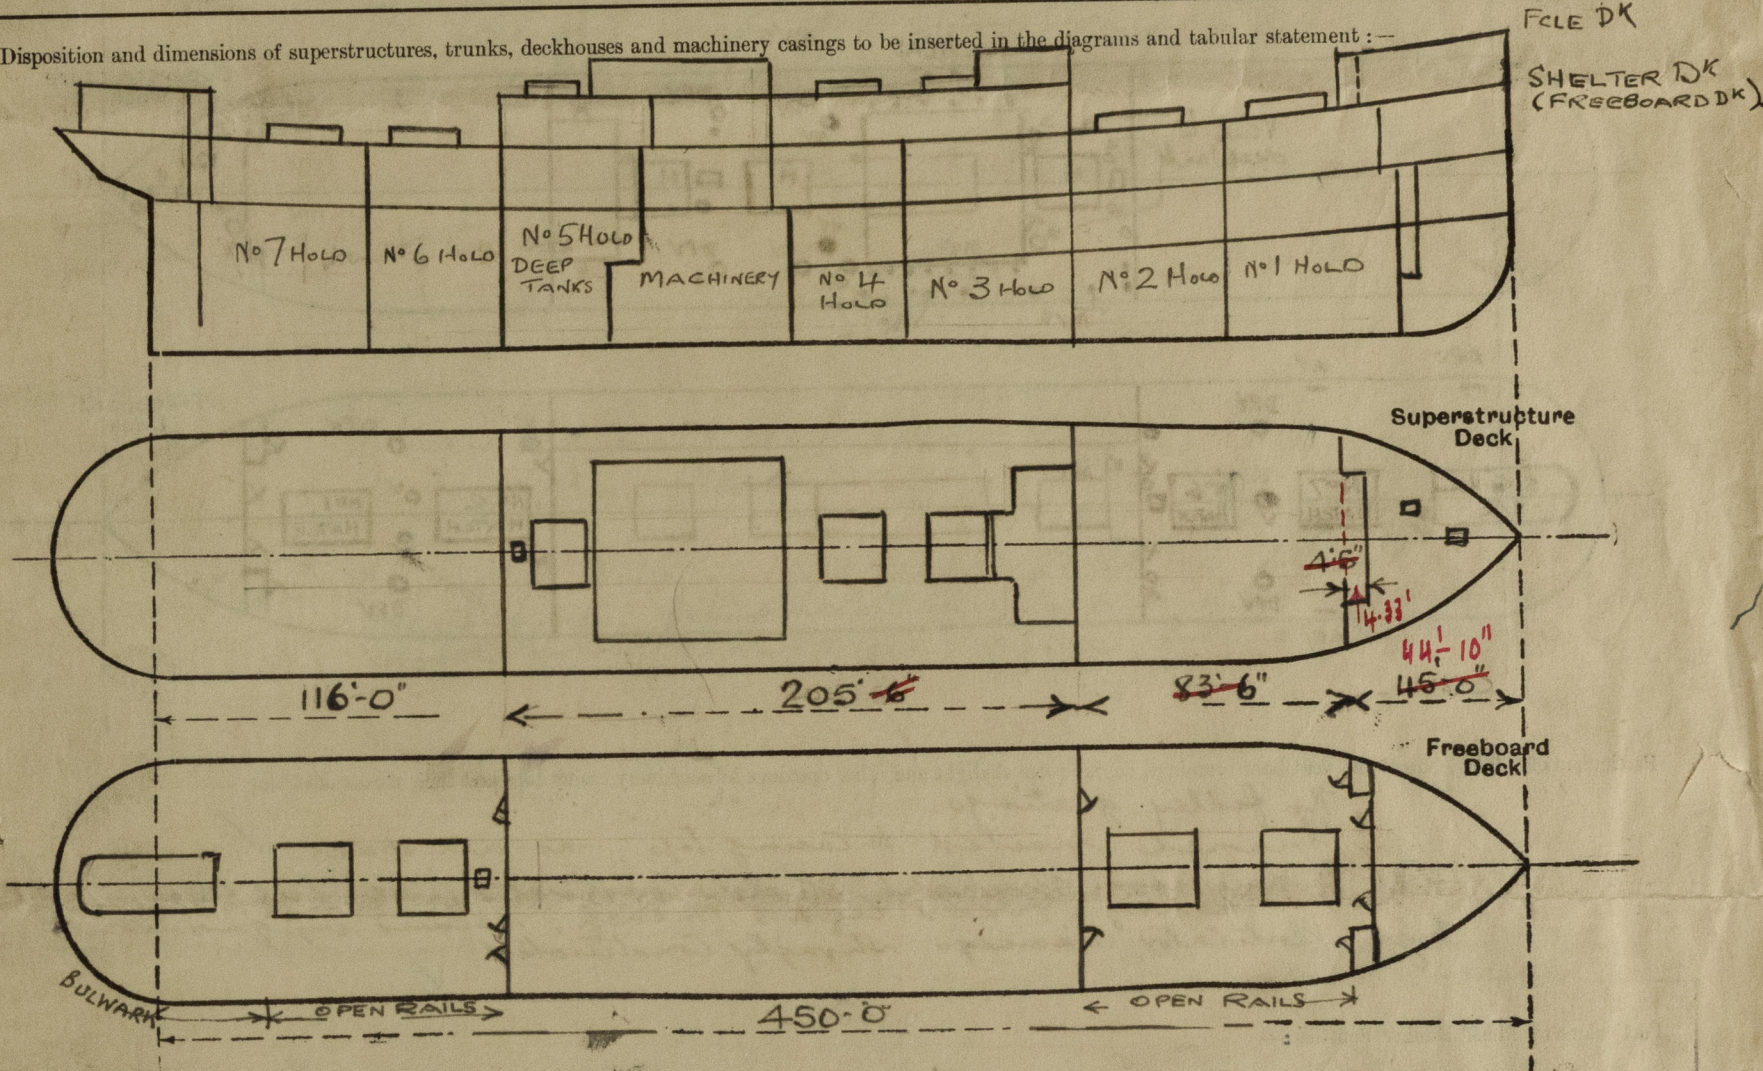 FCLE DK
Disposition and dimensions of superstructures, trunks, deckhouses and machinery casings to be inserted in the diagrams and tabular statement :—
SHELTER DK
(FREEBOARD DK)
No 7 HOLD
No 6 HOLD
No 5 HOLD
DEEP
TANKS
MACHINERY
No 4
HOLD
No 3 HOLD
No 2 HOLD
No 1 HOLD
Superstructure
Deck
4'6"
4.33'
44'-10"
116'-0"
205'-6"
83'-6"
45'-0"
Freeboard
Deck
BULWARK
OPEN RAILS
450'-0"
OPEN RAILS